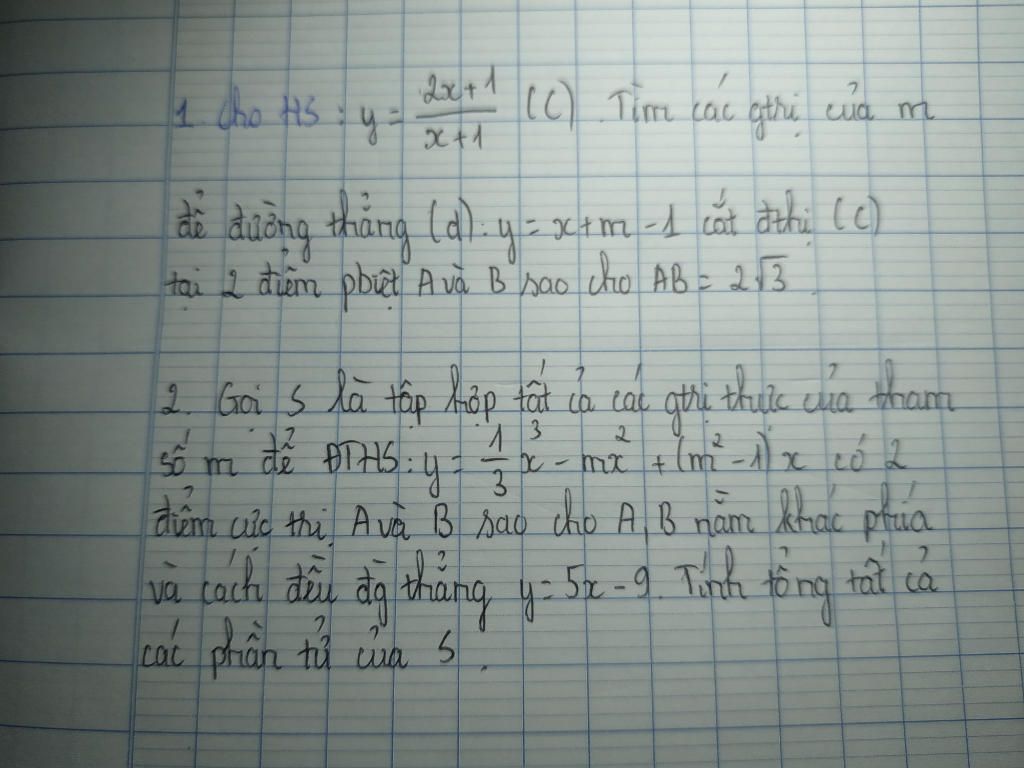 1. Cho HS: y = (2x+1)/(x+1) (C). Tìm các gtrị của m
để đường thẳng (d): y = x+m-1 cắt đthị (C)
tại 2 điểm pbiệt A và B sao cho AB = 2√3.
2. Gọi S là tập hợp tất cả các gtrị thực của tham
số m để ĐTHS: y = 1/3 x³ - mx² + (m²-1)x có 2
điểm cực trị A và B sao cho A, B nằm khác phía
và cách đều đg thẳng y = 5x-9. Tính tổng tất cả
các phần tử của S.